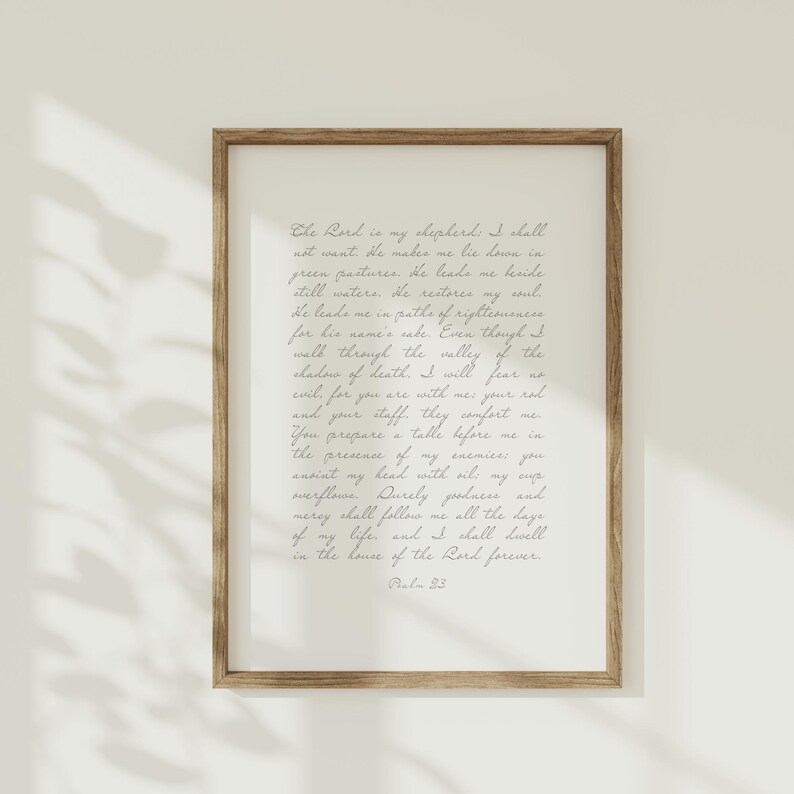 The Lord is my shepherd; I shall
not want. He makes me lie down in
green pastures. He leads me beside
still waters. He restores my soul.
He leads me in paths of righteousness
for his name's sake. Even though I
walk through the valley of the
shadow of death, I will fear no
evil, for you are with me; your rod
and your staff, they comfort me.
You prepare a table before me in
the presence of my enemies; you
anoint my head with oil; my cup
overflows. Surely goodness and
mercy shall follow me all the days
of my life, and I shall dwell
in the house of the Lord forever.
Psalm 23